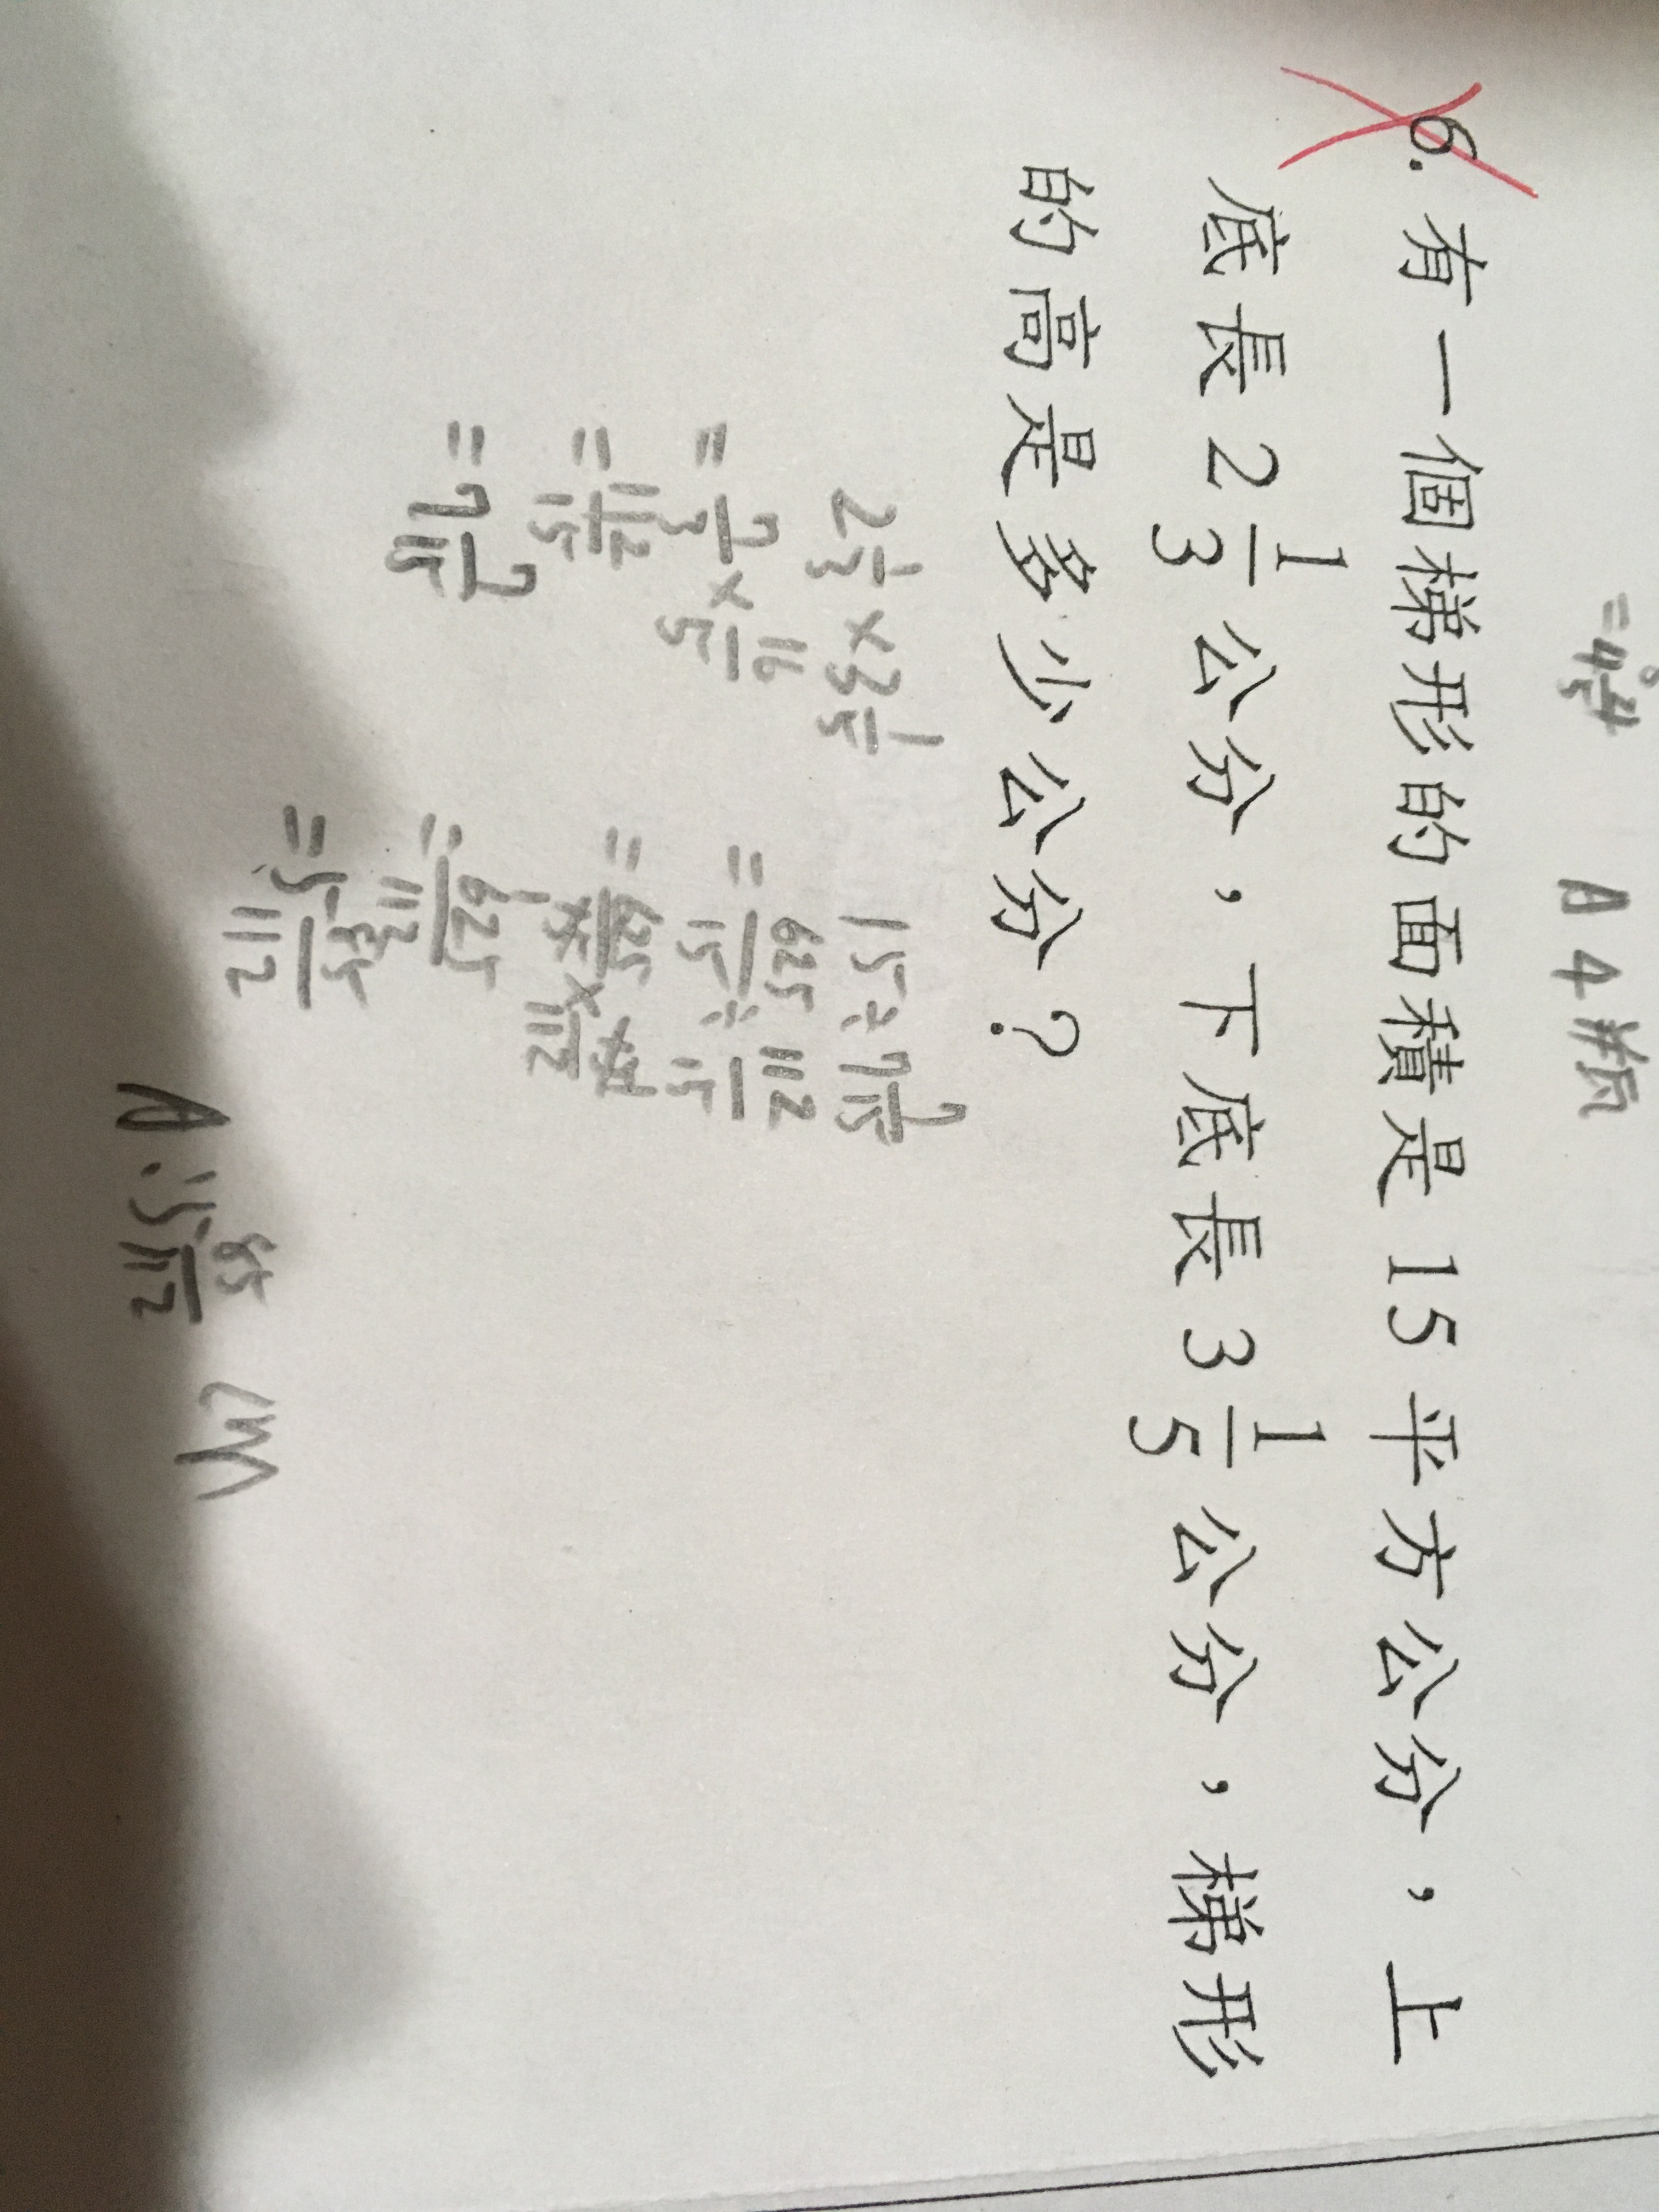 A 4 張
6. 有一個梯形的面積是15平方公分，上
底長2 1/3 公分，下底長3 1/5 公分，梯形
的高是多少公分？
2 1/3 × 3 1/5
= 7/3 × 16/5
= 112/15
= 7 7/15
15 ÷ 7 7/15
= 625/15 ÷ 112/15
= 625/15 × 15/112
= 625/112
= 5 65/112
A: 5 65/112 cm